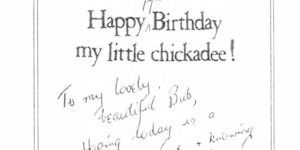 17th
Happy Birthday
my little chickadee!
To my lovely,
beautiful Bub,
Hoping today is a
+ knowing